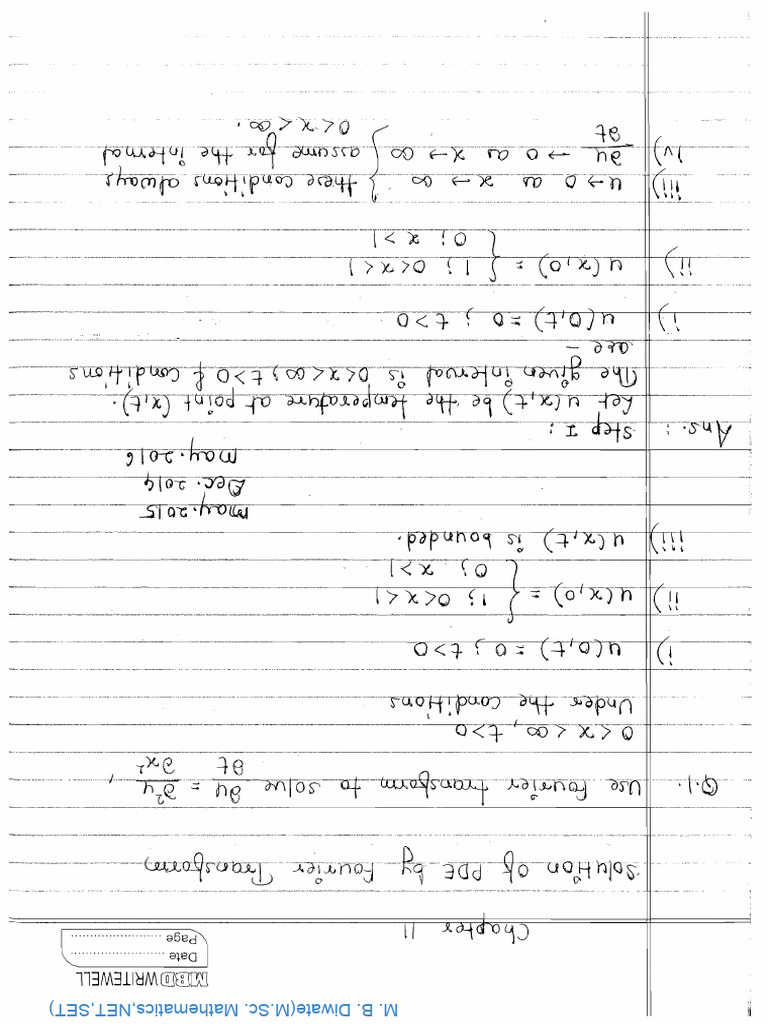 M. B. Diwate(M.Sc. Mathematics,NET,SET)
MBD WRITEWELL
Date ........................
Page ........................
Chapter 11
Solution of PDE by Fourier Transform
Q.1. Use Fourier transform to solve ∂u/∂t = ∂²u/∂x² ,
0 < x < ∞, t>0
Under the conditions
i) u(0,t) = 0 ; t>0
ii) u(x,0) = { 1; 0<x<1
0; x>1
iii) u(x,t) is bounded.
May.2015
Dec. 2014
May.2016
Ans. : Step I :
Let u(x,t) be the temperature at point (x,t).
The given interval is 0<x<∞, t>0 & conditions
are –
i) u(0,t) = 0 ; t>0
ii) u(x,0) = { 1; 0<x<1
0; x>1
iii) u→0 as x→∞ } these conditions always
iv) ∂u/∂t → 0 as x→∞ } assume for the interval
0<x<∞.